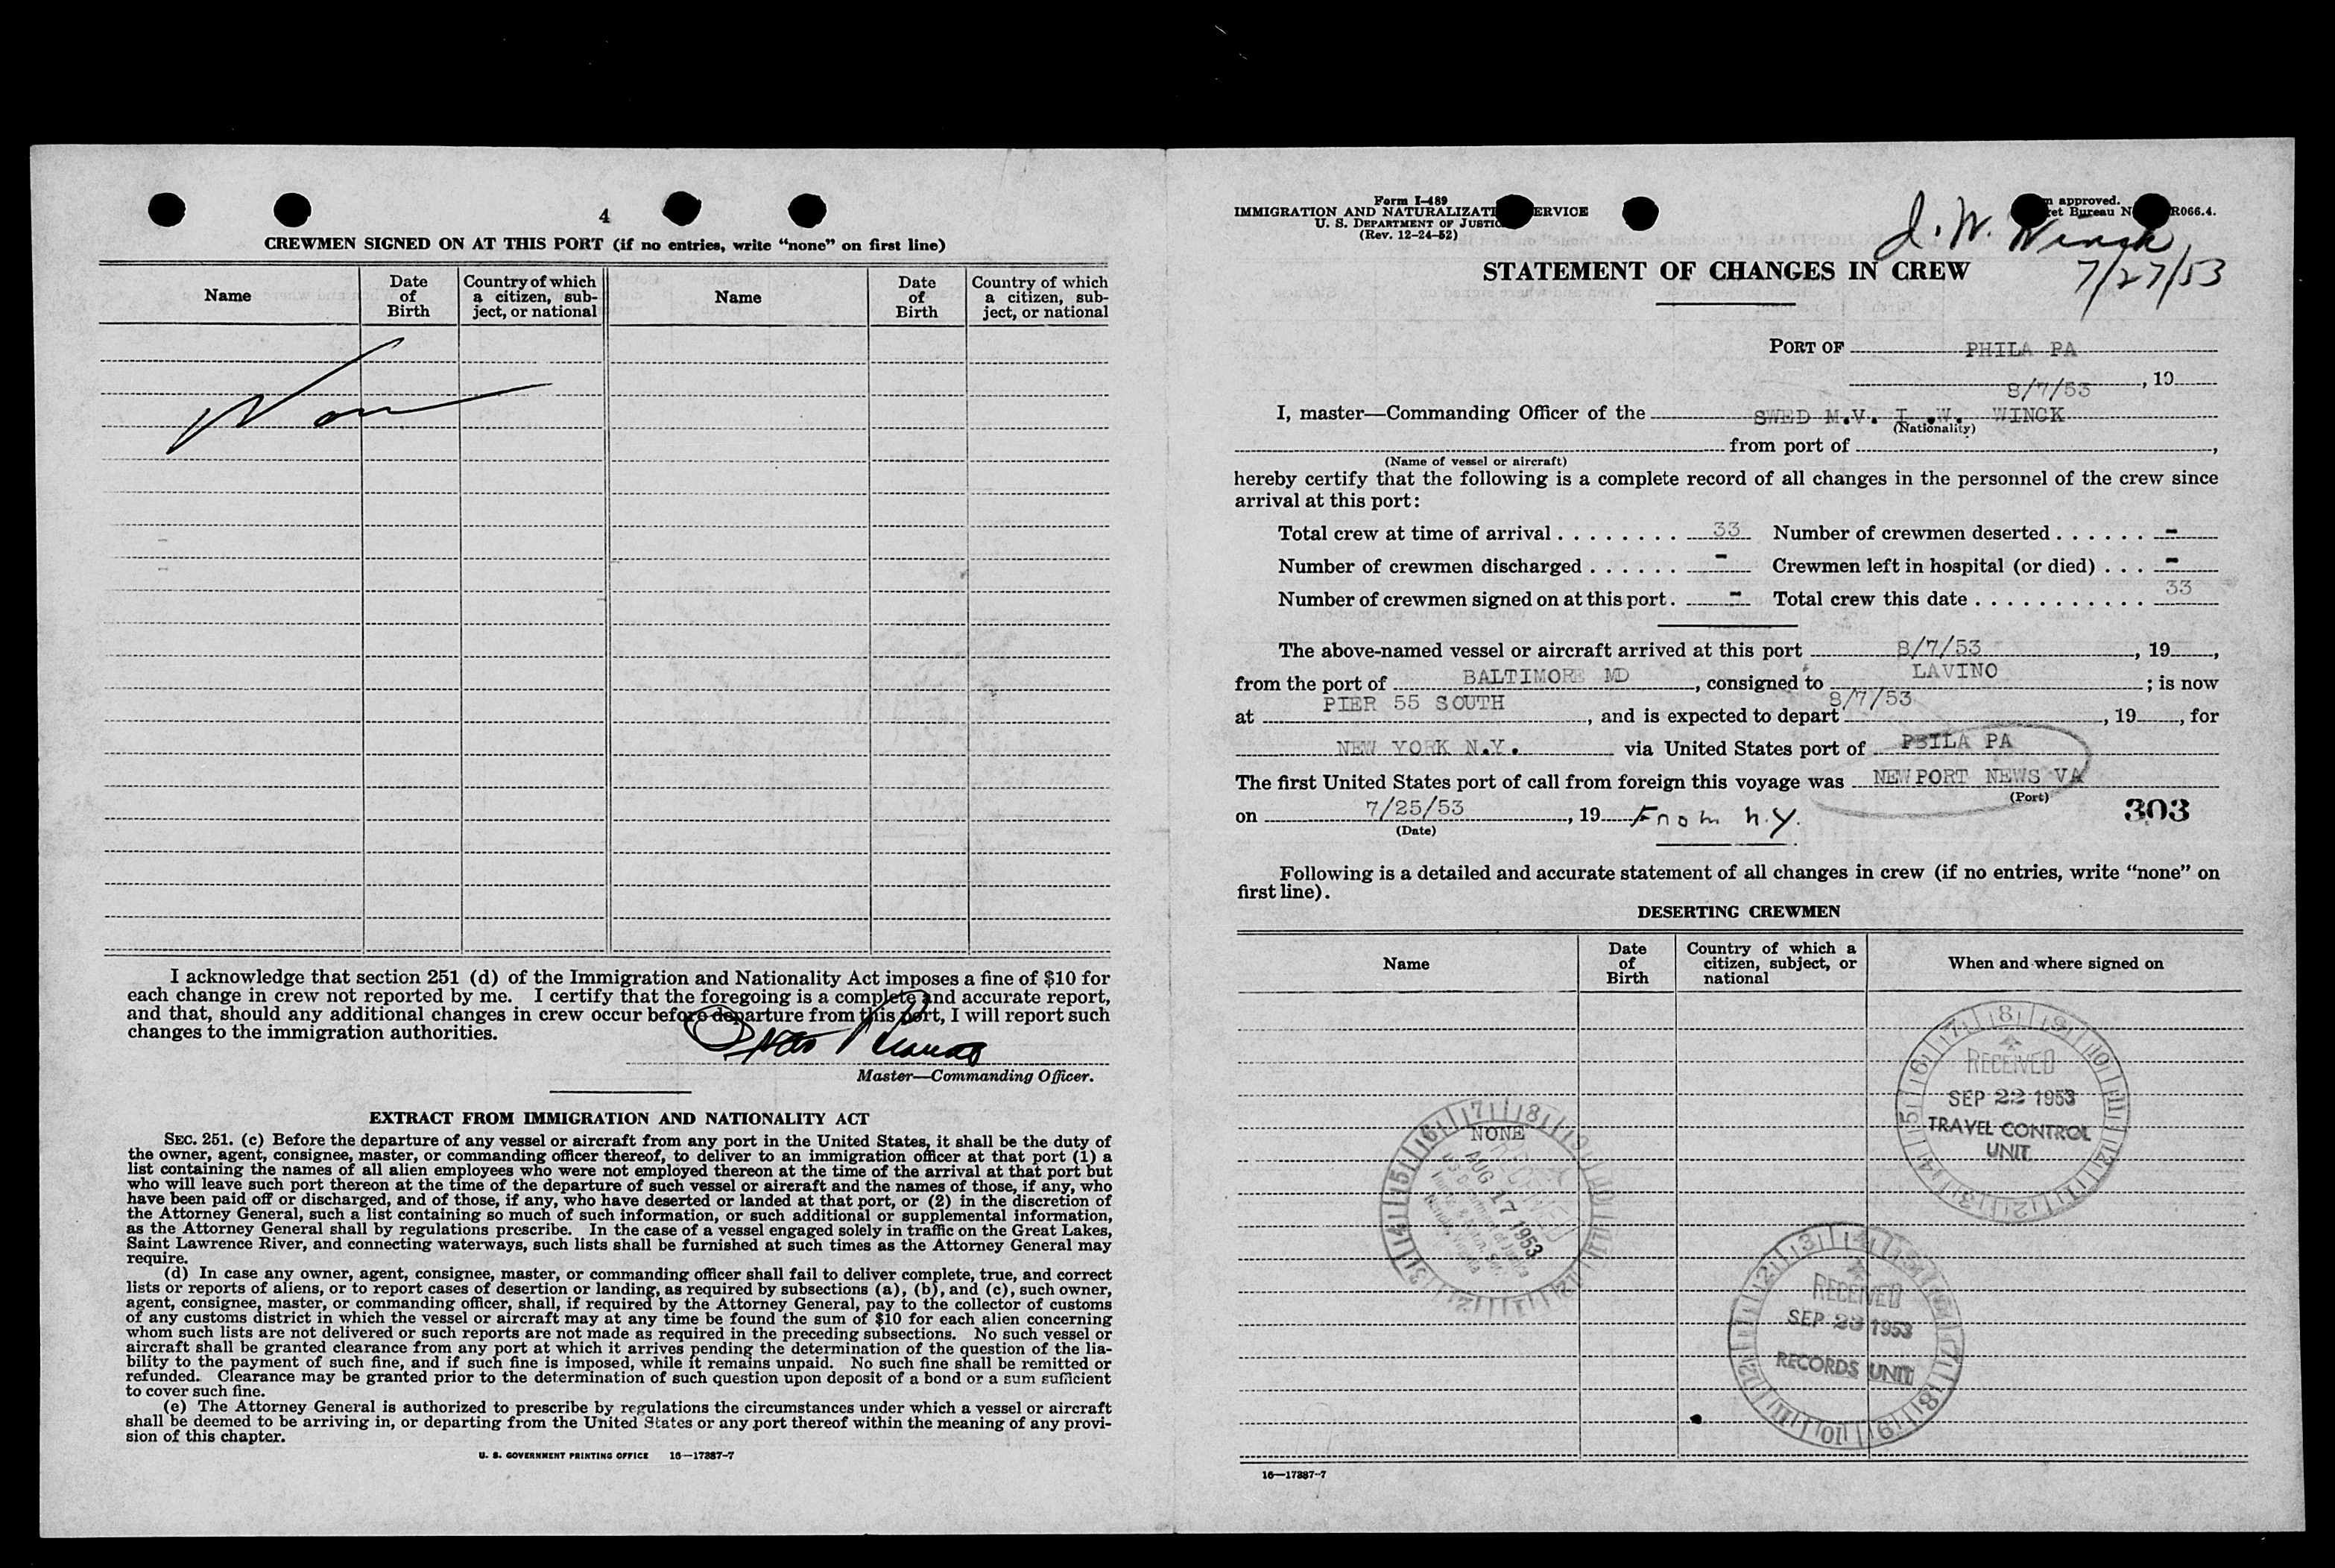 4
CREWMEN SIGNED ON AT THIS PORT (if no entries, write “none” on first line)
Name
Date of Birth
Country of which a citizen, subject, or national
Name
Date of Birth
Country of which a citizen, sub-ject, or national
None
I acknowledge that section 251 (d) of the Immigration and Nationality Act imposes a fine of $10 for
each change in crew not reported by me. I certify that the foregoing is a complete and accurate report,
and that, should any additional changes in crew occur before departure from this port, I will report such
changes to the immigration authorities.
Master—Commanding Officer.
EXTRACT FROM IMMIGRATION AND NATIONALITY ACT
SEC. 251. (c) Before the departure of any vessel or aircraft from any port in the United States, it shall be the duty of
the owner, agent, consignee, master, or commanding officer thereof, to deliver to an immigration officer at that port (1) a
list containing the names of all alien employees who were not employed thereon at the time of the arrival at that port but
who will leave such port thereon at the time of the departure of such vessel or aircraft and the names of those, if any, who
have been paid off or discharged, and of those, if any, who have deserted or landed at that port, or (2) in the discretion of
the Attorney General, such a list containing so much of such information, or such additional or supplemental information,
as the Attorney General shall by regulations prescribe. In the case of a vessel engaged solely in traffic on the Great Lakes,
Saint Lawrence River, and connecting waterways, such lists shall be furnished at such times as the Attorney General may
require.
(d) In case any owner, agent, consignee, master, or commanding officer shall fail to deliver complete, true, and correct
lists or reports of aliens, or to report cases of desertion or landing, as required by subsections (a), (b), and (c), such owner,
agent, consignee, master, or commanding officer, shall, if required by the Attorney General, pay to the collector of customs
of any customs district in which the vessel or aircraft may at any time be found the sum of $10 for each alien concerning
whom such lists are not delivered or such reports are not made as required in the preceding subsections. No such vessel or
aircraft shall be granted clearance from any port at which it arrives pending the determination of the question of the lia-
bility to the payment of such fine, and if such fine is imposed, while it remains unpaid. No such fine shall be remitted or
refunded. Clearance may be granted prior to the determination of such question upon deposit of a bond or a sum sufficient
to cover such fine.
(e) The Attorney General is authorized to prescribe by regulations the circumstances under which a vessel or aircraft
shall be deemed to be arriving in, or departing from the United States or any port thereof within the meaning of any provi-
sion of this chapter.
U. S. GOVERNMENT PRINTING OFFICE 16—17387-7
Form I-489
IMMIGRATION AND NATURALIZATI ERVICE
U. S. DEPARTMENT OF JUSTIC
(Rev. 12-24-52)
approved.
et Bureau N R066.4.
J. W. Winck
7/27/53
STATEMENT OF CHANGES IN CREW
PORT OF PHILA PA
8/7/53, 19
I, master—Commanding Officer of the SWED M.V. I .W. WINCK
(Nationality)
from port of ,
(Name of vessel or aircraft)
hereby certify that the following is a complete record of all changes in the personnel of the crew since
arrival at this port:
Total crew at time of arrival . . . . . . . . 33 Number of crewmen deserted . . . . . . -
Number of crewmen discharged . . . . . . - Crewmen left in hospital (or died) . . . -
Number of crewmen signed on at this port . - Total crew this date . . . . . . . . . . . 33
The above-named vessel or aircraft arrived at this port 8/7/53, 19 ,
from the port of BALTIMORE MD, consigned to LAVINO; is now
at PIER 55 SOUTH, and is expected to depart 8/7/53, 19 , for
NEW YORK N.Y. via United States port of PHILA PA
The first United States port of call from foreign this voyage was NEWPORT NEWS VA
(Port)
on 7/25/53, 19 From N.Y.
(Date)
303
Following is a detailed and accurate statement of all changes in crew (if no entries, write “none” on
first line).
DESERTING CREWMEN
Name
Date of Birth
Country of which a citizen, subject, or national
When and where signed on
NONE
AUG 17 1953
RECEIVED
SEP 22 1953
TRAVEL CONTROL
UNIT
RECEIVED
SEP 23 1953
RECORDS UNIT
16—17387-7